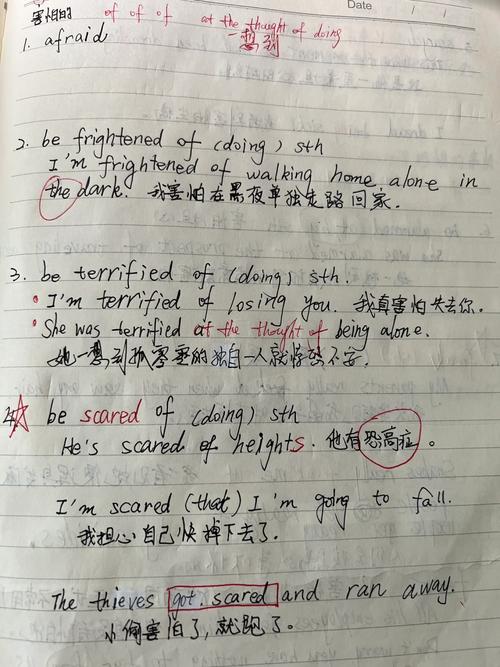 害怕的 of of of at the thought of doing
Date / /
一想到
1. afraid
2. be frightened of (doing) sth
I'm frightened of walking home alone in
the dark. 我害怕在黑夜单独走路回家.
3. be terrified of (doing) sth.
• I'm terrified of losing you. 我真害怕失去你.
• She was terrified at the thought of being alone.
她一想到孤零零的独自一人就惊恐不安.
4. be scared of (doing) sth
He's scared of heights. 他有恐高症。
I'm scared (that) I'm going to fall.
我担心自己快掉下去了.
The thieves got scared and ran away.
小偷害怕了,就跑了。